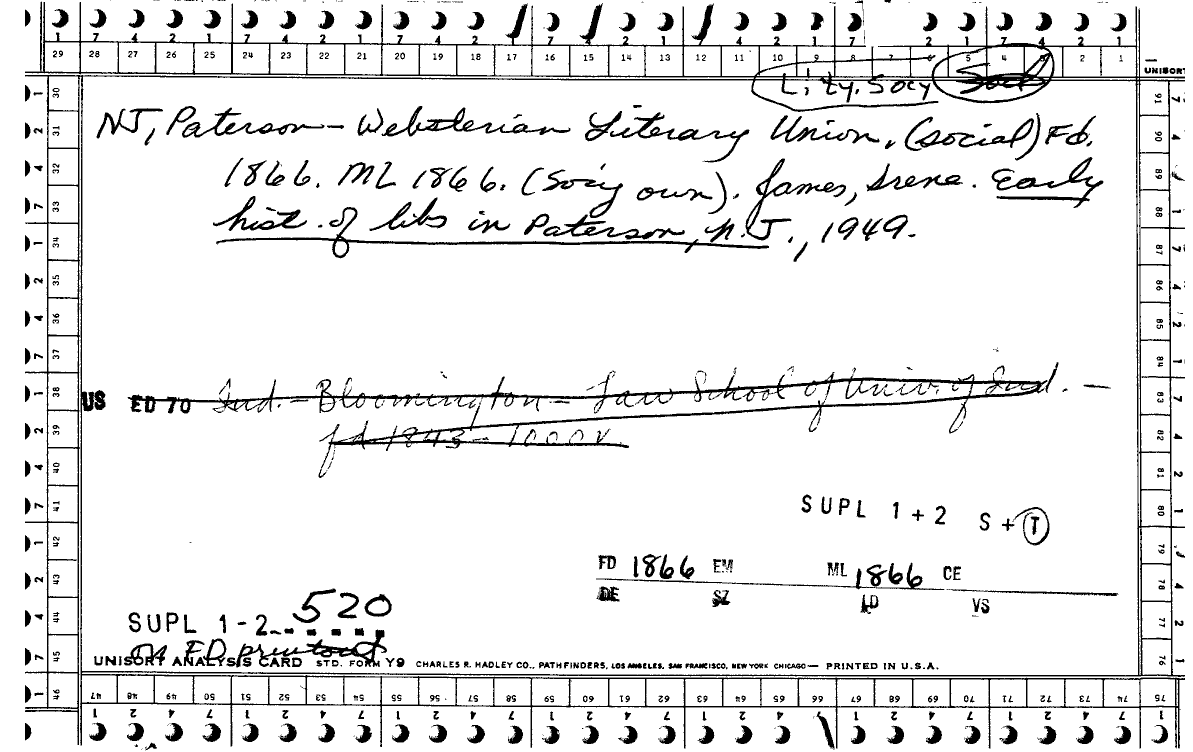 29 28 27 26 25 24 23 22 21 20 19 18 17 16 15 14 13 12 11 10 9 8 7 6 5 4 3 2 1
UNISORT
Lity. Socy
NJ, Paterson — Websterian Literary Union. (social) Fd.
1866. ML 1866. (Soc'y own). James, Irene. Early
hist. of libs in Paterson, N.J., 1949.
US ED 70 Ind. — Bloomington — Law School of Univ. of Ind. —
fd 1843 — 1000v.
SUPL 1+2 S+T
FD 1866 EM ML 1866 CE
DE SZ LD VS
SUPL 1-2 520
on FD printout
UNISORT ANALYSIS CARD STD. FORM Y9 CHARLES R. HADLEY CO., PATHFINDERS, LOS ANGELES, SAN FRANCISCO, NEW YORK CHICAGO — PRINTED IN U.S.A.
46 47 48 49 50 51 52 53 54 55 56 57 58 59 60 61 62 63 64 65 66 67 68 69 70 71 72 73 74 75